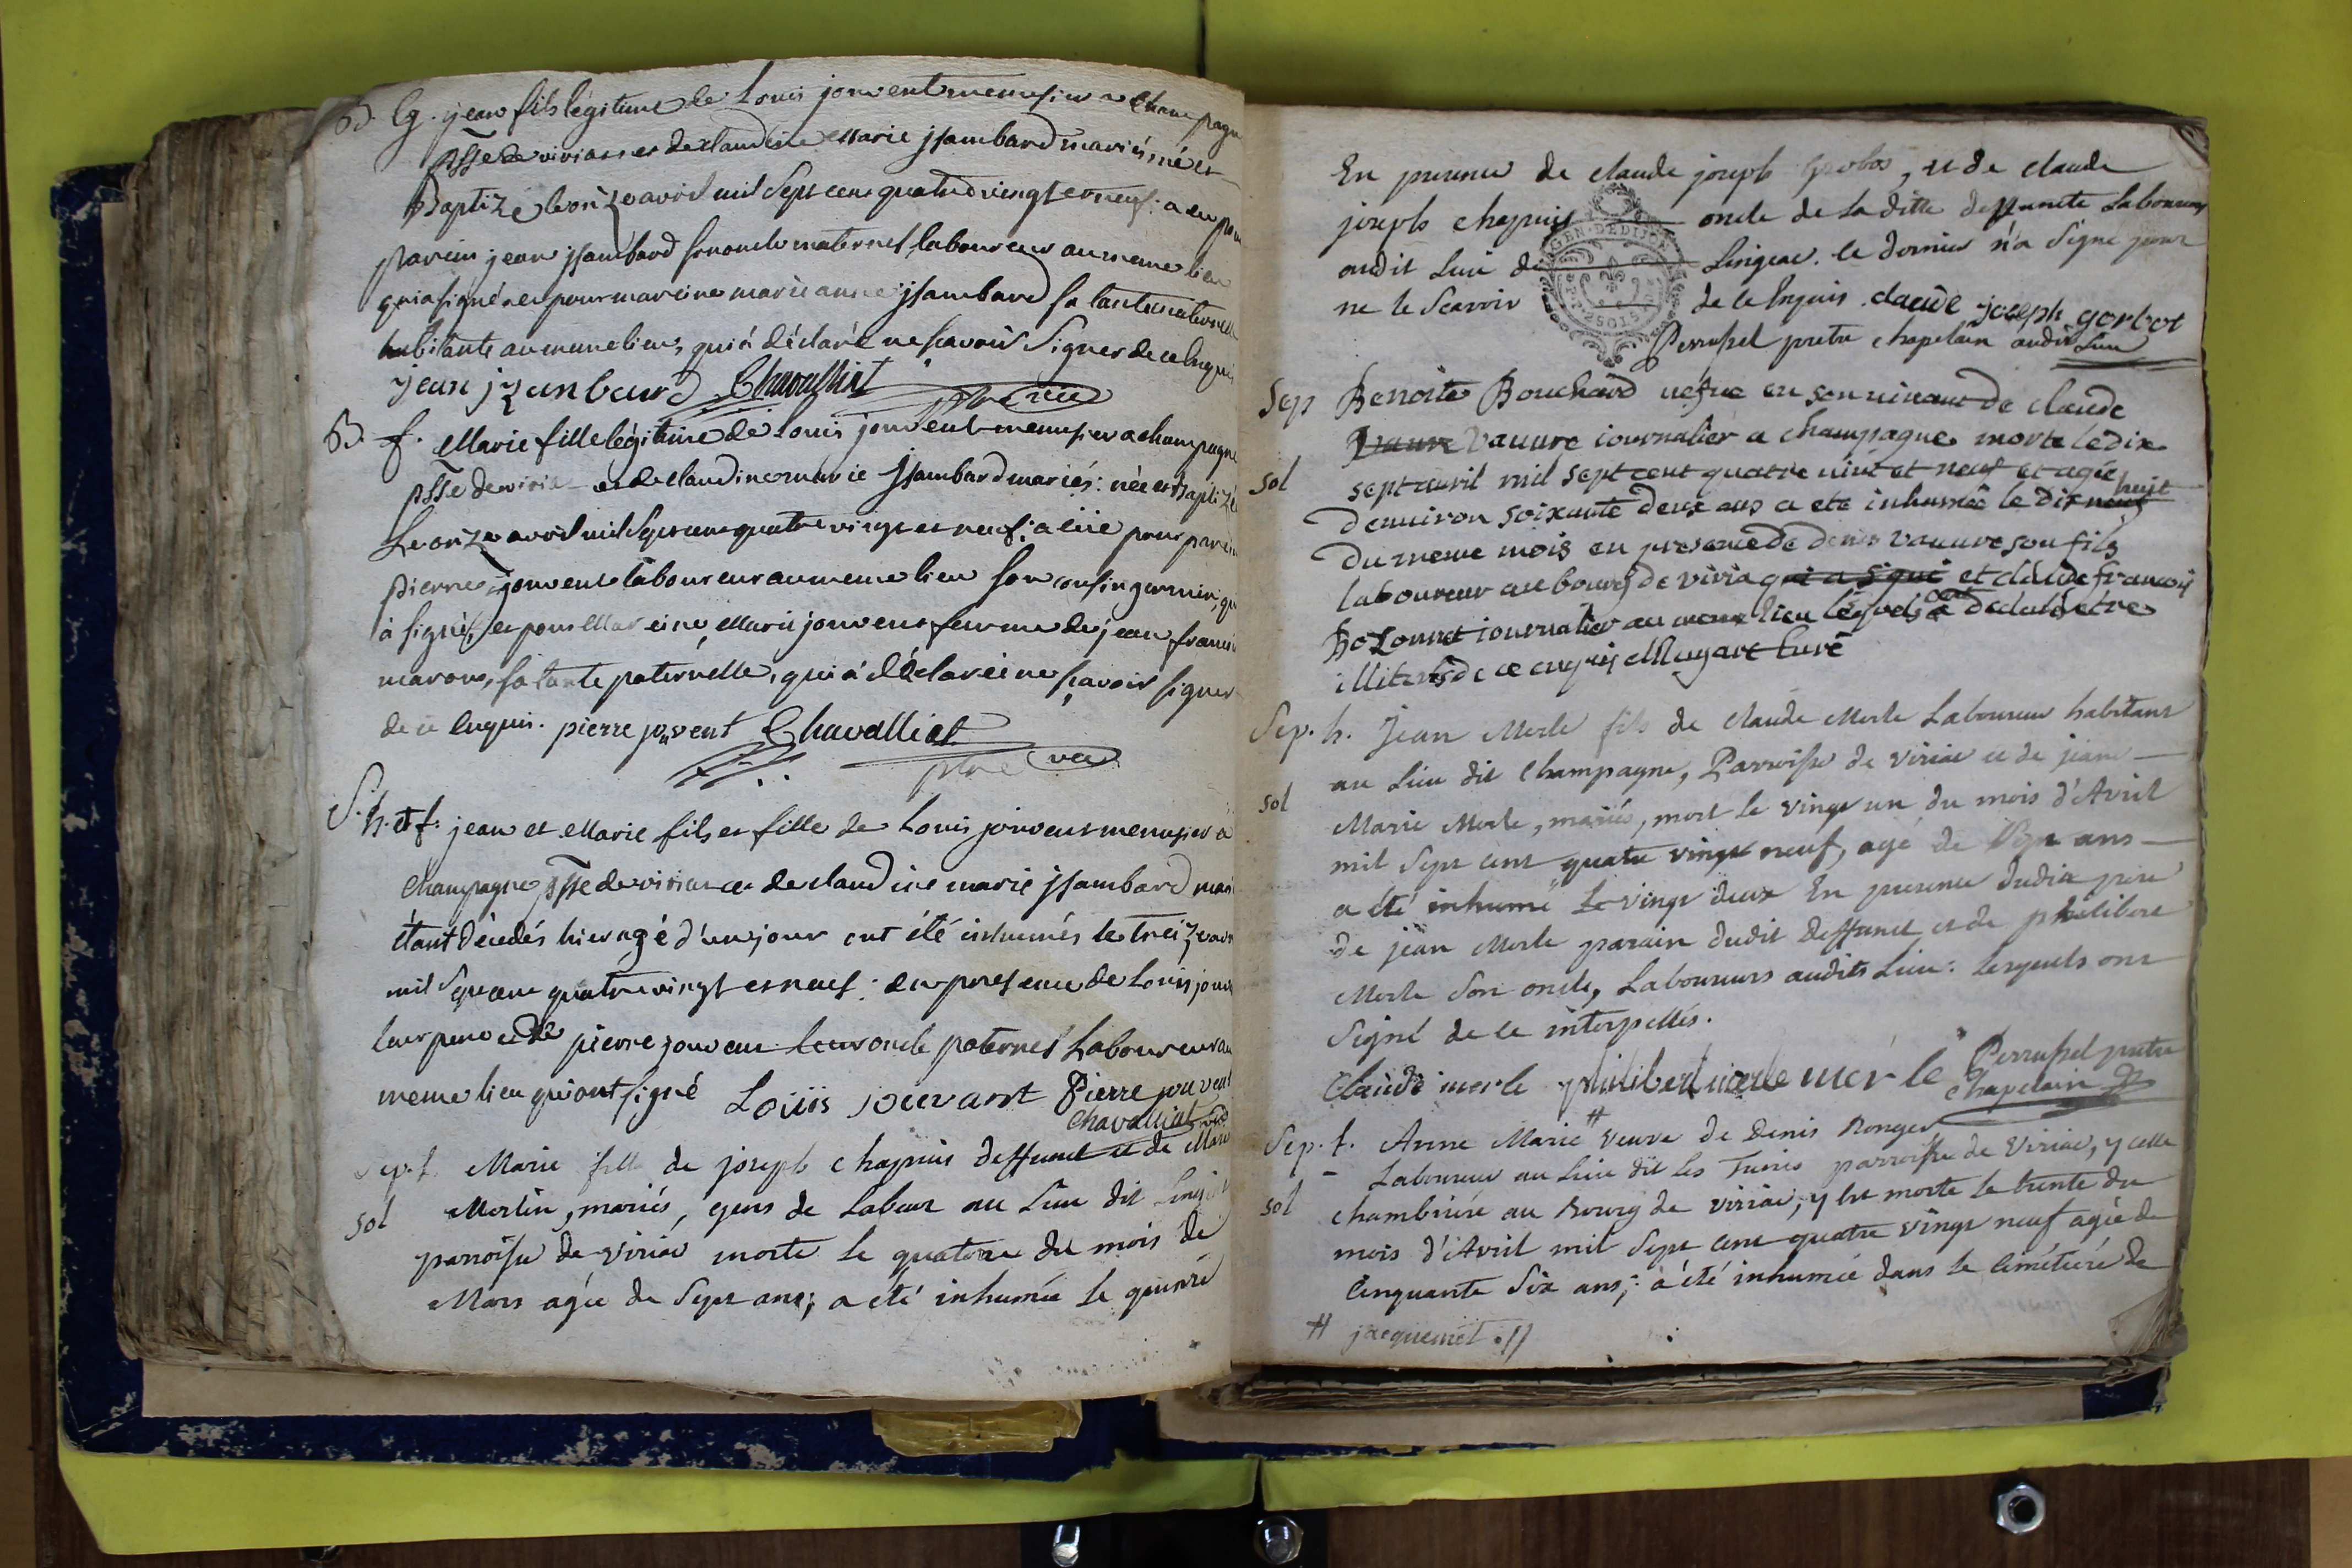 B. G. jean fils légitime de Louis jouvent menusier a Champagne
psse de viriat et de claudine Marie jsambard mariés, né et
Baptizé le onze avril mil Sept cens quatre vingt et neuf: a eu pour
parein jean jsambard son oncle maternel, laboureur au meme lieu
qui a signé, et pour mareine marie anne jsambard sa tante maternelle
habitante au meme lieu, qui á déclaré ne savoir signer de ce enquis
jean jzanbard Chavalliat
B. f. Marie fille légitime de Louis jouvent menusier a champagne
psse de viriat et de claudine marie jsambard mariés: née et Baptizée
Le onze avril mil Sept cens quatre vingt et neuf: a eüe pour parein
pierre jouvent laboureur au meme lieu son cousin germain, qui
à signé, et pour Mareine Marie jouvent femme de jean francois
maron, sa tante paternelle, qui a déclaré ne savoir signer
de ce enquis. pierre jouvent Chavalliat
S. h. et f. jean et Marie fils et fille de Louis jouvent menusier a
Champagne psse de viriat et de claudine marie jsambard mariés
étant décédés hier agé d'un jour ont été inhumés le treize avril
mil Sept cens quatre vingt et neuf: en presence de Louis jouvent
leur pere et de pierre jouvent leur oncle paternel Laboureur au
meme lieu qui ont signé Loüis jouvant Pierre jouvent
Chavalliat
Sep. f. Marie fille de joseph chapuis deffunct et de Marie
sol Merlin, mariés, gens de Labeur au Lieu dit Lingeat
parroisse de viriat morte le quatorze du mois de
Mars agée de Sept ans; a été inhumée le quinze
En presence de claude joseph Gorbos, et de claude
joseph chapuis oncle de La ditte deffuncte Laboureurs
audit Lieu de Lingeat. le dernier n'a Signé pour
ne le Scavoir de ce Enquis. claude joseph gorbot
Perrussel pretre chapelain audit Lieu
Sep Benoite Bouchard vefve en son vivant de claude
Vauvre Vauvre journalier a champagne morte le dix
sol sept avril mil sept cent quatre vint et neuf et agée
huit
denviron soixante deux ans a eté inhumée le dix neuf
du meme mois en presence de denis vauvre son fils
laboureur au bourg de viria qui a signé et claude francois
ont
Bozonnet journalier au meme lieu lesquels a declaré etre
illiterés de ce enquis Mugart Curé
Sep. h. Jean Merle fils de Claude Merle Laboureur habitant
au Lieu dit Champagne, Parroisse de viriat et de jeane
sol Marie Merle, mariés, mort le vingt un du mois d'Avril
mil Sept cent quatre vingt neuf, agé de Sept ans
a été inhumé Le vingt deux En presence dudit pere
de jean Merle parain dudit deffunct et de philibert
Merle Son oncle, Laboureurs audits Lieu: Lesquels ont
Signé de ce interpellés.
Claude merle philibert merle merle Perrussel pretre
chapelain
Sep. f. Anne Marie # veuve de Denis Ronger
Laboureur au Lieu dit les Tunis parroisse de Viriat, y celle
sol chambriére au Bourg de viriat, y Est morte le trente du
mois d'Avril mil Sept cent quatre vingt neuf agée de
Cinquante Six ans; a été inhumée dans le Cimétiére de
# jacquemet .//